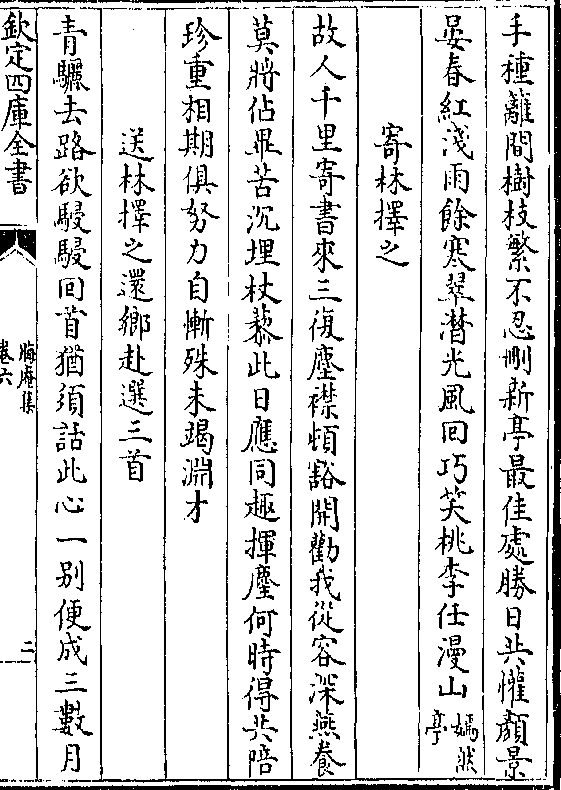 手種籬間樹枝繁不忍刪新亭最佳處勝日共懽顏景
晏春紅淺雨餘寒翠潸光風回巧笑桃李任漫山嫣然亭
寄林擇之
故人千里寄書來三復塵襟頓豁開勸我從容深燕養
莫將佔畢苦沉埋杖藜此日應同趣揮麈何時得共陪
珍重相期俱努力自慚殊未竭淵才
送林擇之還鄉赴選三首
青驪去路欲駸駸回首猶須話此心一别便成三數月
欽定四庫全書
晦庵集
卷六
二